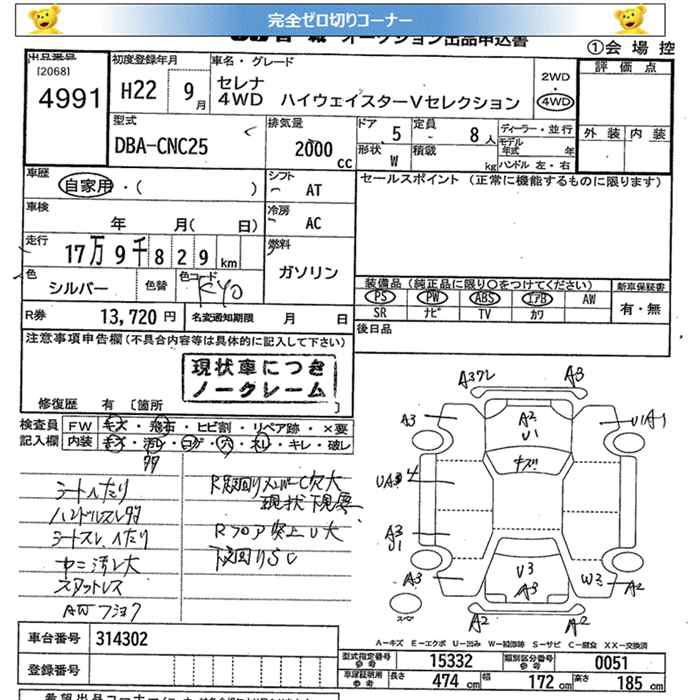 完全ゼロ切りコーナー
オークション出品申込書
①会場控
出品番号
[2068]
4991
初度登録年月
H22 9月
車名・グレード
セレナ
4WD ハイウェイスターVセレクション
2WD
・
4WD
評価点
外装 内装
型式
DBA-CNC25
排気量
2000 cc
ドア 5
定員 8人
形状 W
積載 kg
ディーラー・並行
モデル年式 年
ハンドル 左・右
車歴
自家用・( )
シフト
AT
セールスポイント (正常に機能するものに限ります)
車検
年 月( 日)
冷房
AC
走行
17万9千829km
燃料
ガソリン
色
シルバー
色替
色コード
KY0
装備品(純正品に限り○をつけてください)
新車保証書
PS PW ABS エアB AW
SR ナビ TV カワ
有・無
R券 13,720円
名変通知期限 月 日
後日品
注意事項申告欄(不具合内容等は具体的に記入して下さい)
現状車につき
ノークレーム
修復歴 有 [箇所 ]
検査員記入欄
FW キズ・飛石・ヒビ割・リペア跡・×要
内装 キズ・汚レ・コゲ・穴・スレ・キレ・破レ
シートへたり
ハンドルスレ
シートスレ、へたり
中ニ汚レ大
スタットレス
AWフヨク
R足廻りメンバーC穴大
現状下見要
Rフロア突上U大
下廻りSC
A3 A3
A3
A2
U1
U1A1
キズ
UA3
A3
U1
A3
U3
A3
W3
A2
A2 A2
A-キズ E-エクボ U-凹み W-補修跡 S-サビ C-腐食 XX-交換済
車台番号 314302
登録番号
型式指定番号 参考 15332
類別区分番号 参考 0051
車庫証明用 参考
長さ 474 cm
幅 172 cm
高さ 185 cm
希望出品コーナー